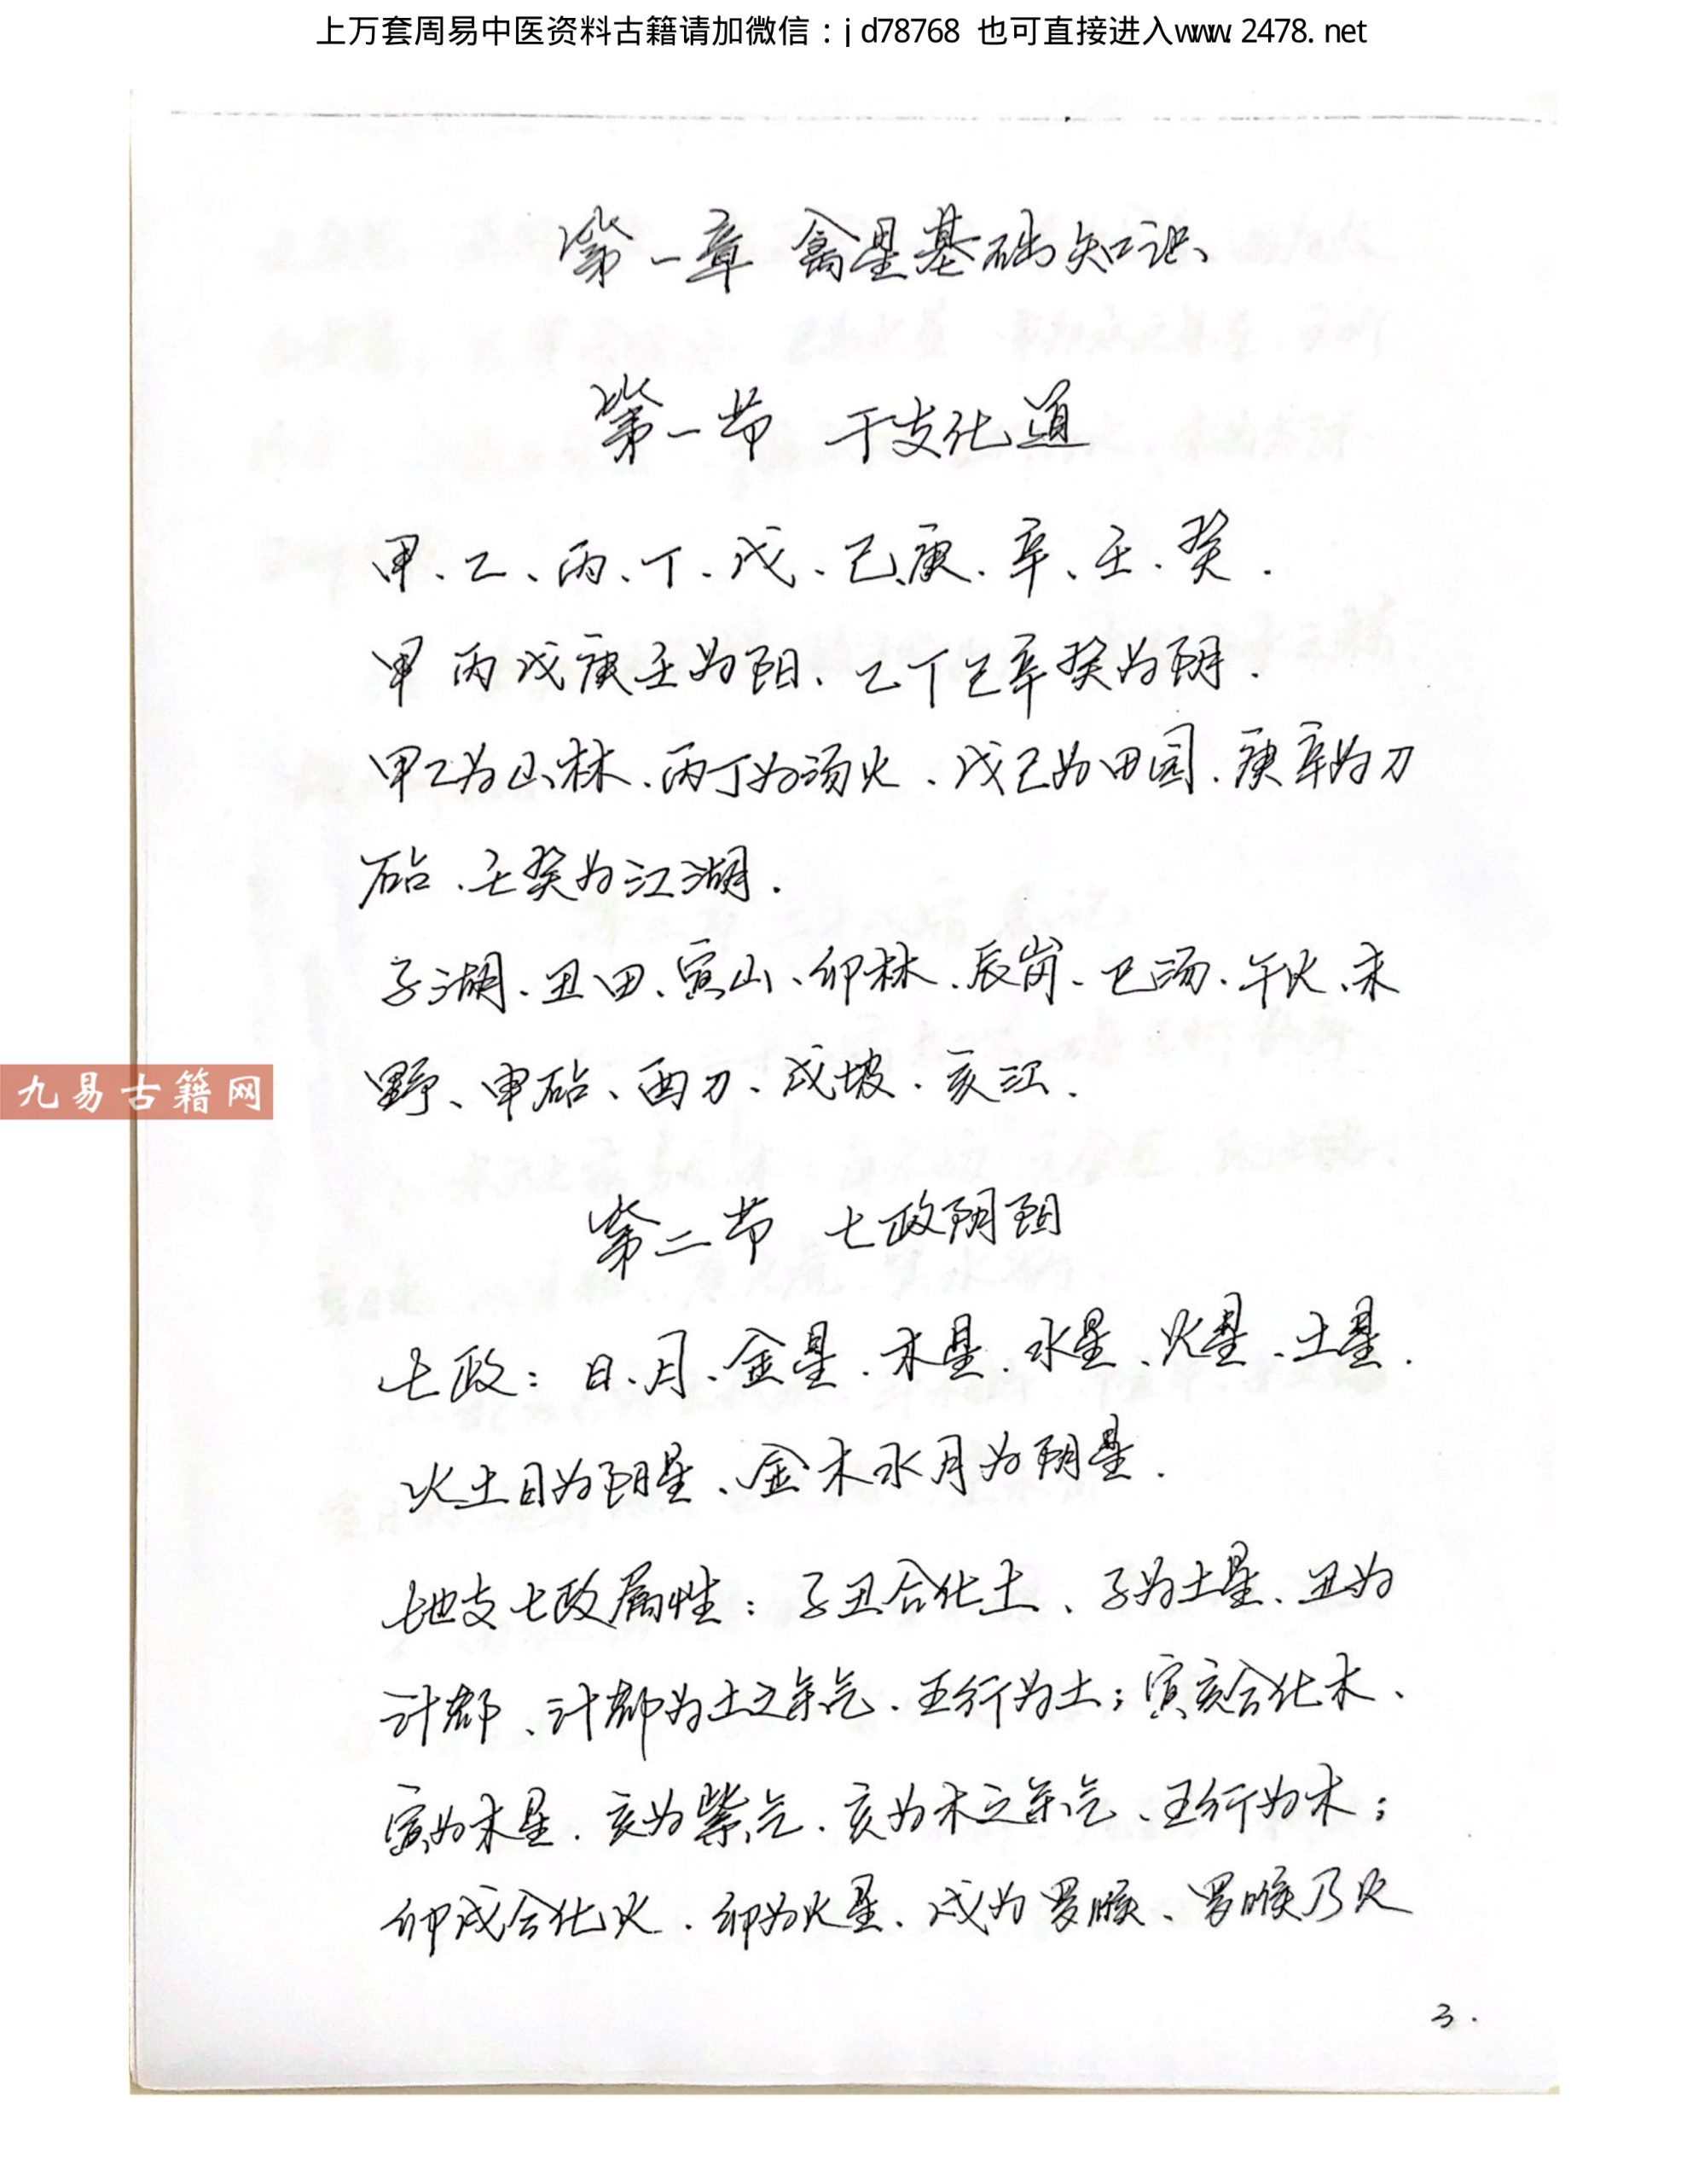 上万套周易中医资料古籍请加微信：jd78768 也可直接进入www.2478.net
第一章 禽星基础知识
第一节 干支化道
甲、乙、丙、丁、戊、己、庚、辛、壬、癸．
甲丙戊庚壬为阳、乙丁己辛癸为阴．
甲乙为山林、丙丁为汤火、戊己为田园、庚辛为刀
砧、壬癸为江湖．
子湖、丑田、寅山、卯林、辰岗、巳汤、午火、未
野、申砧、酉刀、戌坡、亥江．
九易古籍网
第二节 七政阴阳
七政：日、月、金星、木星、水星、火星、土星．
火土日为阳星、金木水月为阴星．
地支七政属性：子丑合化土、子为土星、丑为
计都、计都为土之余气、五行为土；寅亥合化木、
寅为木星、亥为紫气、亥为木之余气、五行为木；
卯戌合化火、卯为火星、戌为罗睺、罗睺乃火
3．